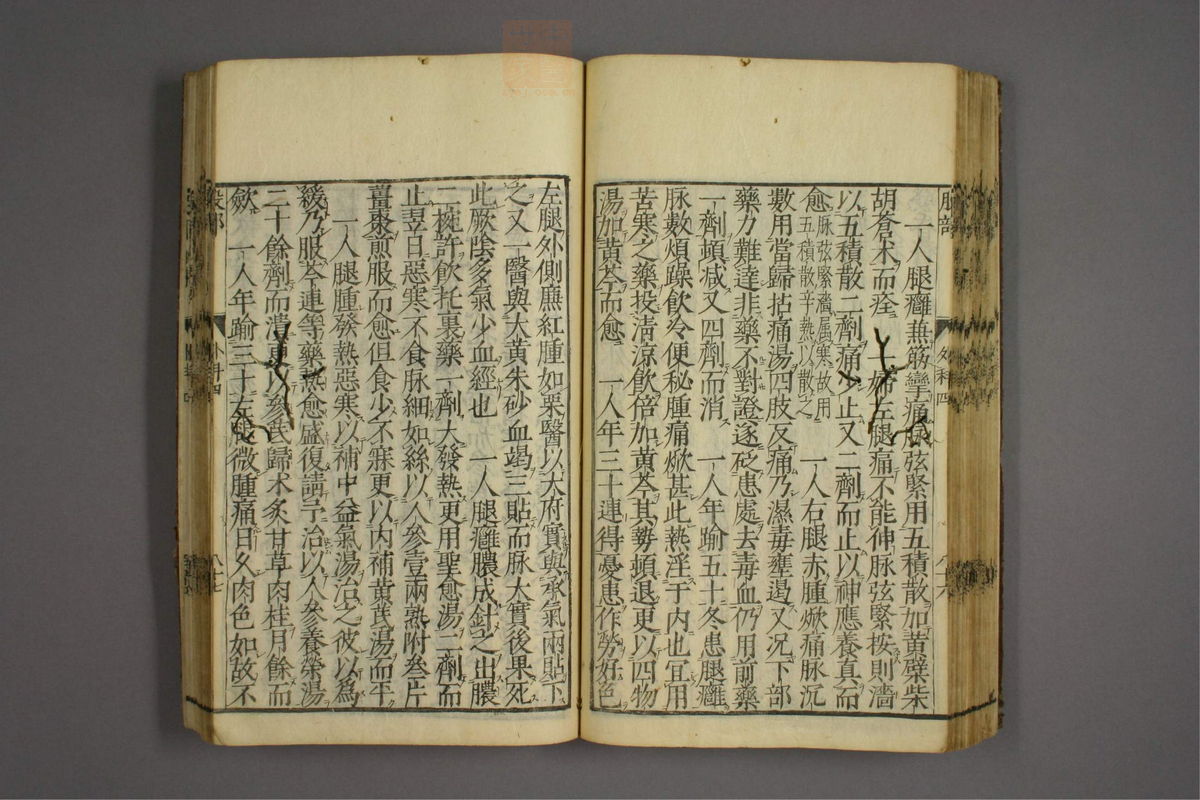 一人腿癰無筋攣痛脉弦緊用五積散加黃檗柴
胡蒼朮而痊 一婦左腿痛不能伸脉弦緊按則濇
以五積散二劑痛少止又二劑而止以神應養真而
愈 脉弦緊濇屬寒故用五積散辛熱以散之 一人右腿赤腫焮痛脉沉
數用當歸拈痛湯四肢反痛乃濕毒壅遏又況下部
藥力難達非藥不對證遂砭患處去毒血仍用前藥
一劑頓减又四劑而消 一人年踰五十冬患腿癰
脉數煩躁飲冷便秘腫痛焮甚此熱淫于内也宜用
苦寒之藥投淸涼飲倍加黃芩其勢頓退更以四物
湯加黃芩而愈 一人年三十連得憂患作勞好色
左腿外側廉紅腫如栗醫以大府實與承氣兩貼下
之又一醫與大黃朱砂血竭三貼而脉大實後果死
此厥陰多氣少血經也 一人腿癰膿成針之出膿
二椀許飲托裏藥一劑大發熱更用聖愈湯二劑而
止翌日惡寒不食脉細如絲以人參壹兩熟附叁片
薑棗煎服而愈但食少不寐更以内補黃芪湯而平
一人腿腫發熱惡寒以補中益氣湯治之彼以為
緩乃服芩連等藥熱愈盛復請予治以人參養榮湯
二十餘劑而潰更以參芪歸朮炙甘草肉桂月餘而
斂 一人年踰三十左腿微腫痛日久肉色如故不
股部
外科四
八十六
外科四
八十七